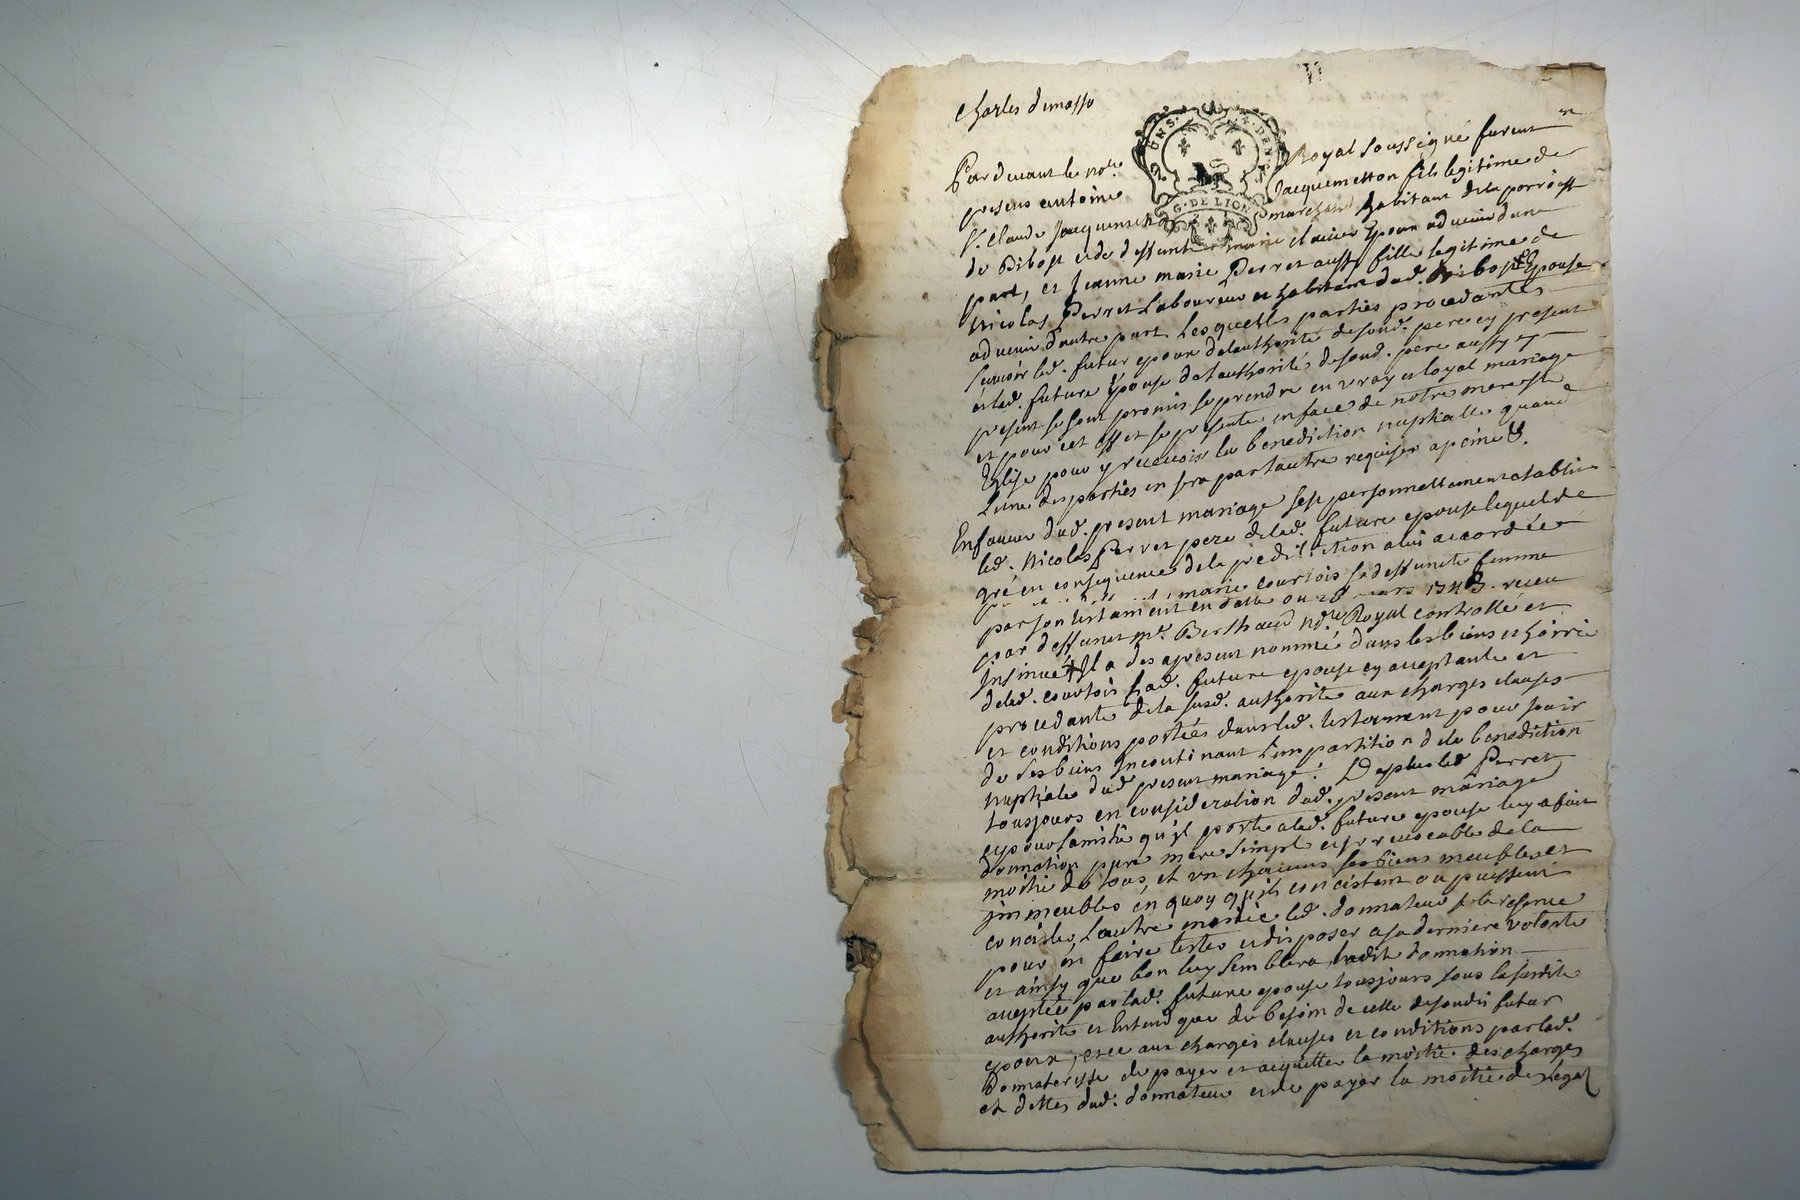 Charles demasso
2. SUNS. 4. DEN. G. DE LION
Pardevant le no.re Royal soussigné furent
presens antoine Jacquemetton fils legitime de
S.r Claude Jacquemetton marchand habitant dela parroisse
de Bibost et de deffunte marie clavier Epoux advenir dune
part, et Jeanne marie Perret aussy fille legitime de
Nicolas Perret Laboureur et habitant dud. Bibost Epouse
advenir dautre part. Lesquelles parties procedantes
scavoir led. futur epoux delauthorité desond. pere cy present
et lad. future Epouse delauthorité desond. pere aussy cy
present se sont promis se prendre en vray et loyal mariage
et pour cet effet se presenter en face de notre mere ste
Eglise pour y recevoir la benediction nuptialle quand
Lune des parties en sera par lautre requise a peine &.
En faveur dud. present mariage sest personnellement etably
led. Nicolas Perret pere delad. future epouse lequel de
gré en consequence dela prediléction a lui accordée
par marie courtois sa deffuncte femme
par son testament en datte du mars receu
par deffunct m.e Berthaud no.re Royal controllé et
Insinué Il a des apresent nommé dans les biens et hoirie
delad. courtois lad. future epouse cy acceptante et
procedante dela susd. authorité aux charges clauses
et conditions portées dans led. testament pour jouir
de ses biens Incontinant Limpartition dela benediction
nuptiale dud. present mariage. De plus led. Perret
tousjours en consideration dud. present mariage
et pour lamitié qu'il porte a lad. future epouse luy a fait
donnation pure mere simple et irrevocable dela
moitié de tous, et un chacuns ses biens meubles et
immeubles en quoy qu'ils concistent ou puissent
concister, Lautre moitié led. donnateur se la reserve
pour en faire tester et disposer a sa derniere volonté
et ainsy que bon luy semblera, ladite donnation
acceptée par lad. future epouse tousjours sous la susdite
authorité et Entend que de besoin de celle desondit futur
epoux, et ce aux charges clauses et conditions par lad.
Donnateresse de payer et acquitter la moitié des charges
et dettes dud. donnateur et de payer la moitié des legat